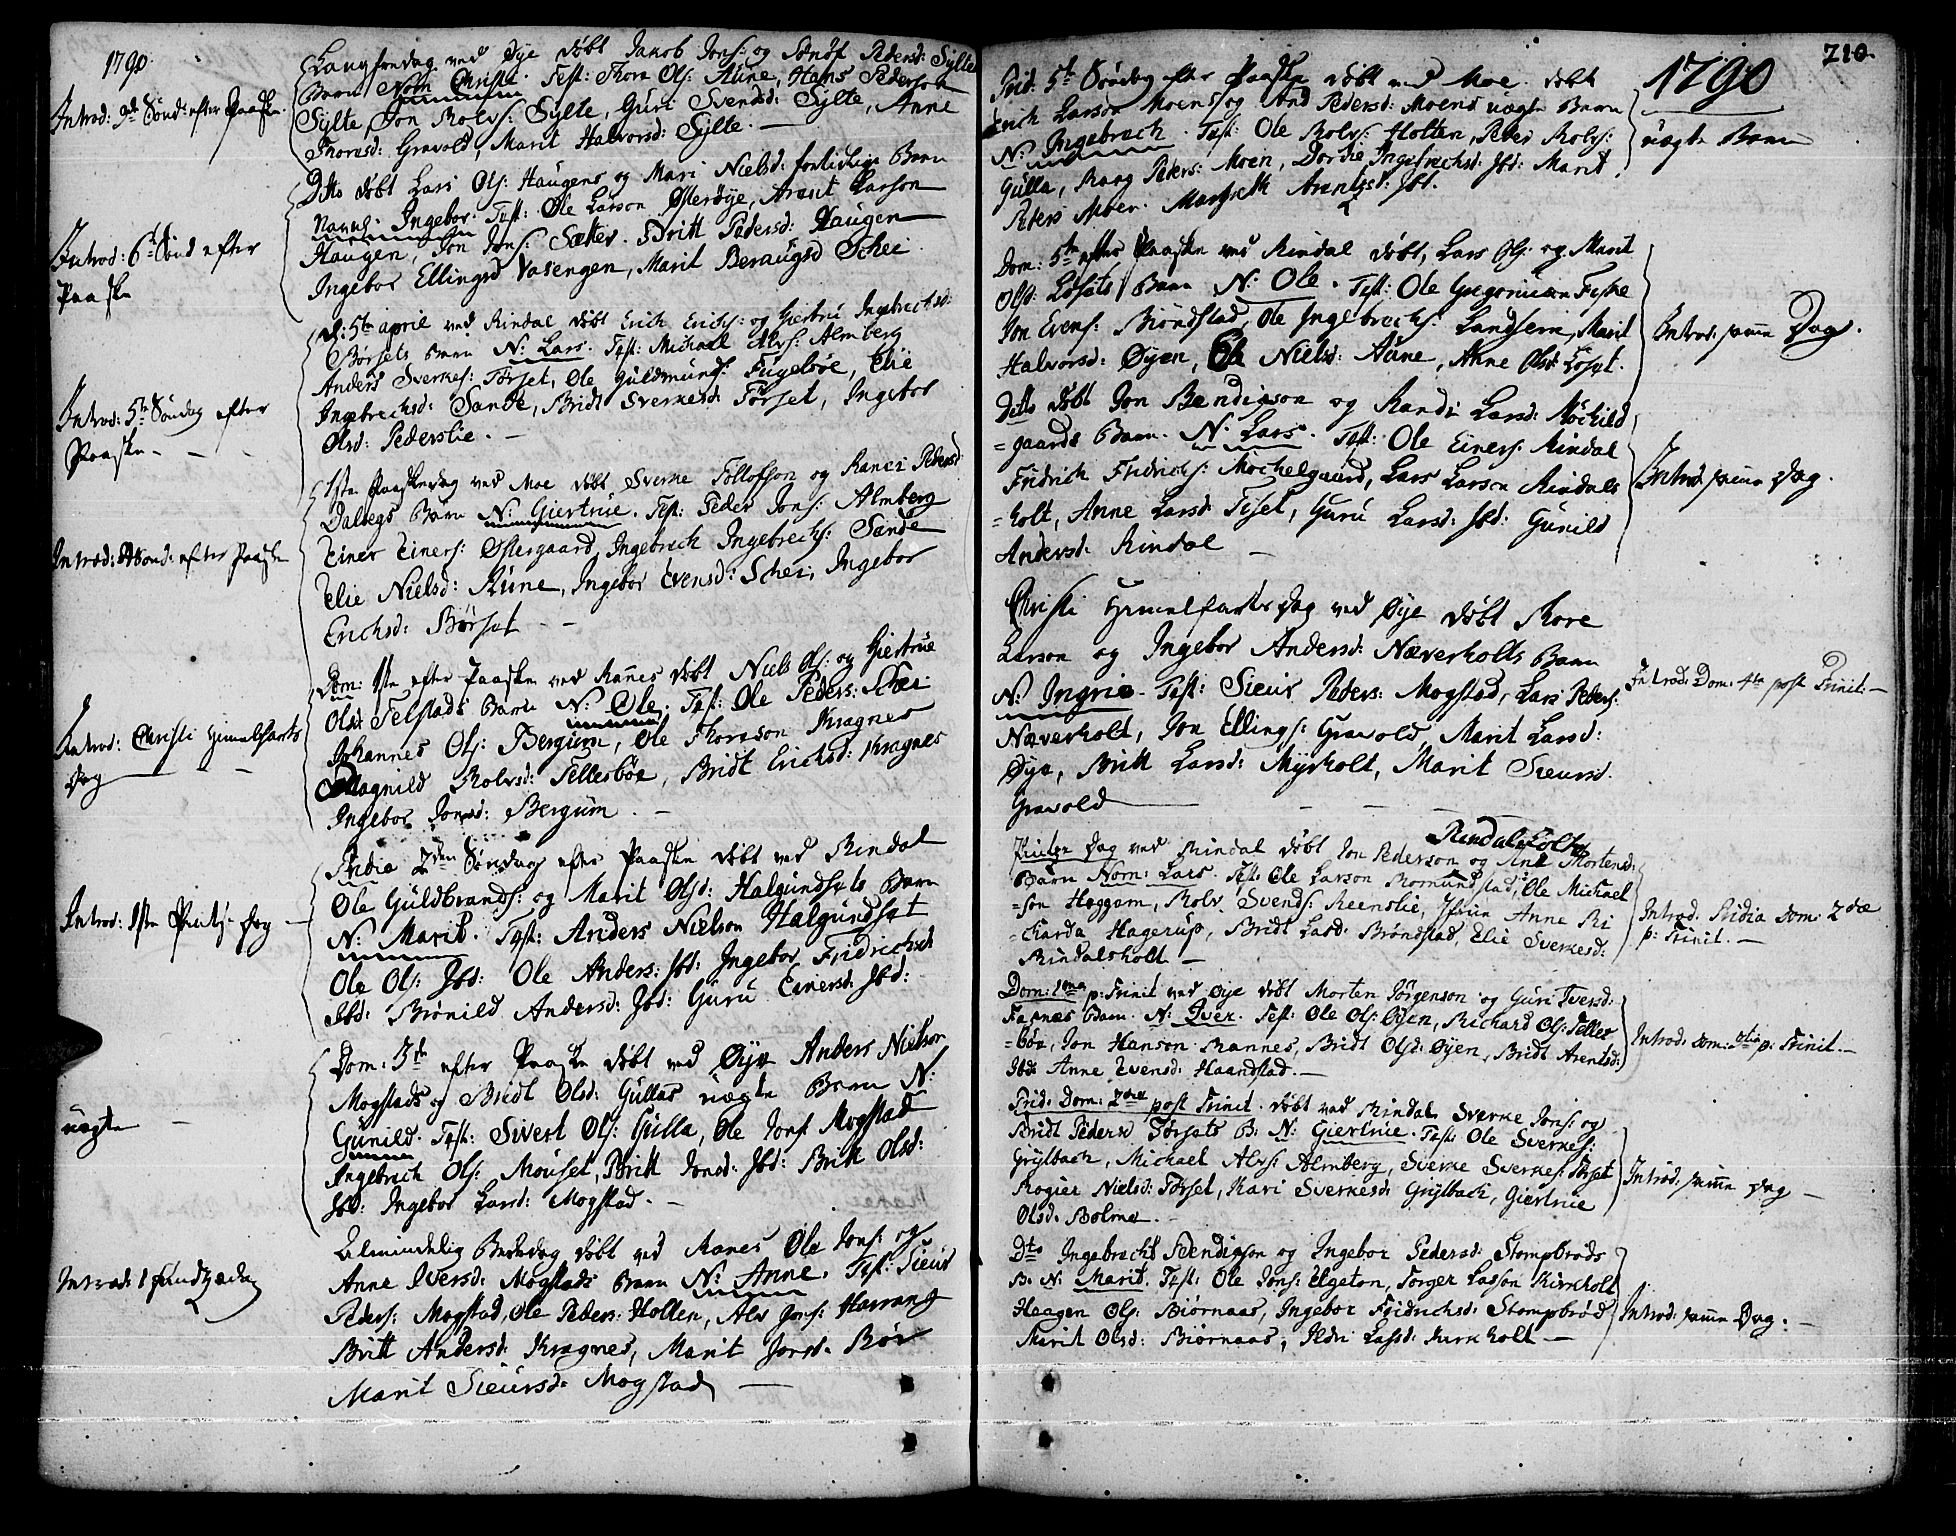 1790.
Introd: 3de Sönd: efter Paaske.
Langfredag ved Øye döbt Jacob Jons: og Sönöf Peders: Sylte
Barn Nom Christe. Test: Thore Ols: Aüne, Hans Pederson
Sylte, Jon Rolvs: Sylte, Guri Svends: Sylte, Anne
Thoresd: Gravold, Marit Halvorsd: Sylte. —
Introd: 6te Sönd efter
Paaske
Dito döbt Lars Ols: Haugens og Mari Nielsd: Barn
Navnl: Ingebor. Test: Ole Larson Østerøye, Arent Larson
Haugen, Jon Jons: Sæter. Britt Pedersd: Haugen
Ingebor Ellingsd Vasengen, Marit Beraugsd Schei.
Introd: 5te Söndag efter
Paaske — -
d: 5te april ved Rindal döbt Erich Erichs: og Giertru Ingebrechtsd:
Børsets Barn N: Lars. Test: Michael Alvs: Almberg
Anders Sverkes: Törset, Ole Güldmunds: Fugelsöe, Elie
Ingebrechsd: Sande, Bridt Sverkesd: Törset, Ingebor
Olsd: Pederslie. —
Introd: Sond: efter Paaske
1ste Paaskedag ved Moe döbt Sverke Tollofson og Ranei Pedersd:
Dalsegs Barn N: Giertrue. Test: Peder Jons: Almberg
Einer Einers: Østergaard, Ingebrech Ingebrechs: Sande
Elie Nielsd: Aüne, Ingebor Evensd: Schei, Ingebor
Erichsd: Børset — -
Introd: Christi Himmelfarts
Dag — -
Dom: 1ste efter Paaske ved Ranes döbt Niels Ols: og Giertrue
Olsd: Telstads Barn N: Ole. Test: Ole Peders: Schei
Johannes Ols: Bergum, Ole Thoreson Kragnes
Magnild Rolvsd: Tellesböe, Bridt Erichsd: Kragnes
Ingebor Jonsd: Bergum. —
Introd: 1ste Pintz Dag —
Fridie 2den Söndag efter Paaske döbt ved Rindal
Ole Güldbrands: og Marit Olsd: Halgundsets Barn
N: Marit. Test: Anders Nielson Halgundset
Ole Ols: Ibd: Ole Anders: Ibd: Ingebor Fridrichsd
Ibd: Brönild Andersd: Ibd: Guru Einersd: Ibd:
uegte —
Dom: 3de efter Paaske döbt ved Øye Anders Nielson
Mogstads og Bridt Olsd: Gullas uægte Barn N:
Gunild. Test: Sivert Ols: Gulla, Ole Jons: Mogstad
Ingebrich Ols: Mouset, Britt Jonsd: Ibd: Britt Olsd:
Ibd: Ingebor Larsd: Mogstad. —
Introd: 1 Pindtzedag
Almindelig Bededag döbt ved Ranes Ole Jons: og
Anne Iversd: Mogstads Barn N: Anne. Test: Sieur
Peders: Mogstad, Ole Peders: Holten, Alv Jons: Harrang
Britt Andersd: Kragnes, Marit Jonsd: Böe
Marit Sieursd: Mogstad —
210.
1790
uægte Barn
Frid: 5te Söndag efter Paaske döbt ved Moe döbt
Erich Larson Moens og And Pedersd: Moens uægte Barn
N: Ingebrech. Test: Ole Rolvs: Holten, Peder Rolvs:
Gulla, Peders: Moen, Dordie Ingebrechsd: Ibd: Marit
Peders Moen. Margreth Arentzd: Ibd.
Introd: samme Dag.
Dom: 5te efter Paaske ved Rindal döbt, Lars Ols: og Marit
Olsd: Løsets Barn N: Ole. Test: Ole Gregoriusen Feske
Jon Evens: Bröndstad, Ole Ingebrechs: Landsem, Marit
Halvorsd: Øyen, Ole Nielsd: Aüne, Anne Olsd: Löset.
Introd: samme Dag.
Dito döbt Jon Bendigson og Randi Larsd: Möchild
=gaards Barn. N: Lars. Test: Ole Einers: Rindal
Fridrich Fridrichs: Mochelgaard, Lars Larson Rindals
=holt, Anne Larsd: Teset, Guru Larsd: Ibd: Gunild
Andersd: Rindal —
Introd: Dom: 4te post Trinit: —
Christi Himmelfarts Dag ved Øye döbt Thore
Larson og Ingebor Andersd: Næverholts Barn
N: Ingrie. Test: Sieur Peders: Mogstad, Lars Peders:
Næverholt, Jon Ellings: Gravold, Marit Larsd:
Øye, Britt Larsd: Myrholt, Marit Sieursd.
Gravold — - - -
Rindalsholts
Introd. Fridia Dom. 2dæ
p: Trinit. —
Pintze Dag ved Rindal döbt Jon Pederson og Ane Mortensd:
Barn Nom: Lars. Test: Ole Larson Romundstad, Ole Michael
=son Heggem, Rolv Svends: Reenslie, Jfrue Anne Ri
=charda Hagerup, Bridt Larsd: Bröndstad, Elie Sverkesd:
Rindalsholt —
Introd: Dom: p: Trinit. —
Dom: 1ma p: Trinit ved Øye döbt Morten Jörgenson og Guri Iversd:
Farnes Barn. N: Iver. Test: Ole Ols: Øyen, Richard Ols: Telles
=böe, Jon Hanson Rannes, Bridt Olsd: Øyen, Bridt Arentsd:
Ibd: Anne Evensd: Haandstad. —
Introd: samme Dag —
Frid: Dom: 2dæ post Trinit. döbt ved Rindal Sverke Jons: og
Bridt Pedersd Törsets B: N: Giertrue. Test: Ole Sverkes:
Grytbach, Michael Alvs: Almberg, Sverke Sverkes: Törset
Rogier Nielsd: Törset, Kari Sverkesd: Grytbach, Giertrue
Olsd: Bolme. —
Introd: samme Dag. —
Dto Ingebrecht Bendigson og Ingebor Pedersd: Stompbröds
B. N: Marit. Test: Ole Jons: Elgeton, Torger Larson Kirkholt
Haagen Ols: Biørnaas, Ingebor Fridrichsd: Stompbröd
Marit Olsd: Biørnaas, Ildri Larsd: Kirkholt —